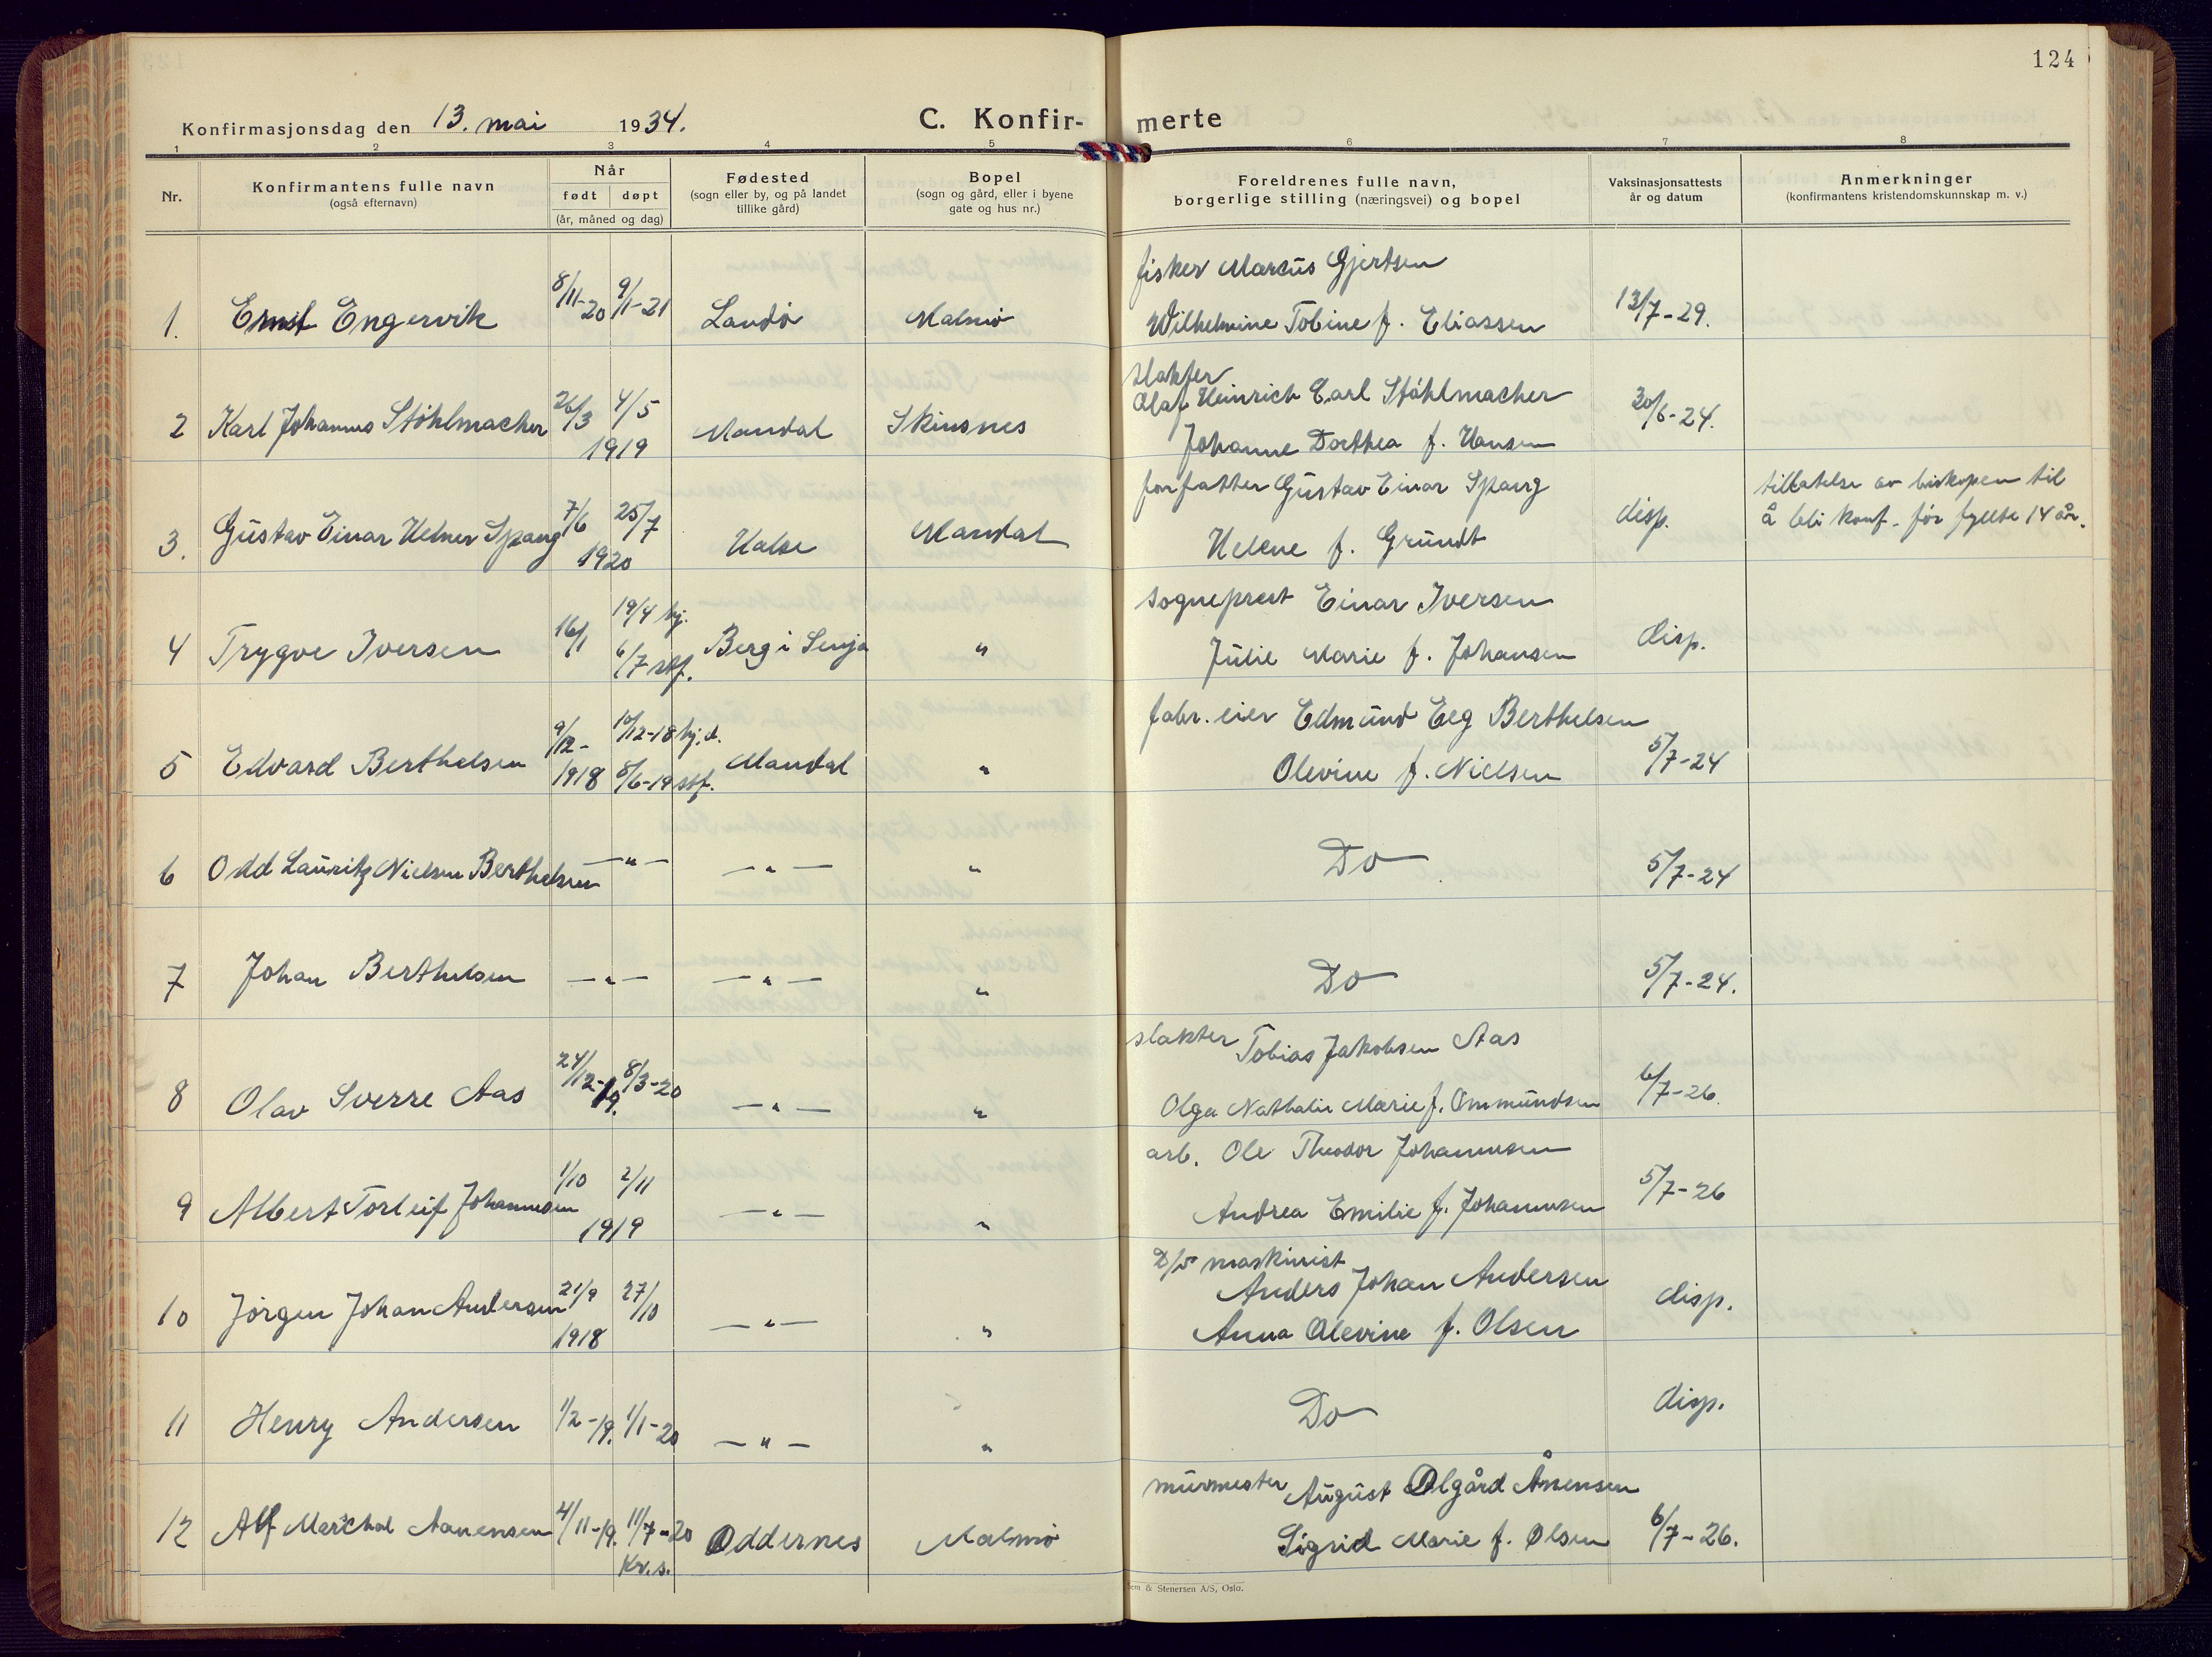 124
Konfirmasjonsdag den 13. mai 1934. C. Konfir- merte
1 2 3 4 5 6 7 8
Nr. Konfirmantens fulle navn (også efternavn) Når født døpt (år, måned og dag) Fødested (sogn eller by, og på landet tillike gård) Bopel (sogn og gård, eller i byene gate og hus nr.) Foreldrenes fulle navn, borgerlige stilling (næringsvei) og bopel Vaksinasjonsattests år og datum Anmerkninger (konfirmantens kristendomskunnskap m. v.)
fisker Marcus Gjertsen
1. Ernst Engervik 8/11-20 9/1-21 Landø Malmø Wilhelmine Tobine f. Eliassen 13/7-29.
slakter
Olaf Heinrich Carl Ståhlmacher
2 Karl Johannes Ståhlmacher 26/3 4/5 1919 Mandal Skinsnes Johanne Dorthea f. Hansen 30/6-24.
forfatter Gustav Einar Spang tillatelse av biskopen til
3. Gustav Einar Helner Spang 7/6 25/7 1920 Halse Mandal Helene f. Grundt disp. å bli konf. før fyllte 14 år.
19/4 hj. sogneprest Einar Iversen
4 Trygve Iversen 16/1 6/7 stf. Berg i Senja " Julie Marie f. Johansen disp.
9/12- 10/12-18 hj.d. fabr. eier Edmund Eeg Berthelsen
5 Edvard Berthelsen 1918 8/6-19 stf. Mandal " Olevine f. Nielsen 5/7-24
6 Odd Lauritz Nielsen Berthelsen —"— —"— " Do 5/7-24
7 Johan Berthelsen —"— —"— " Do 5/7-24.
slakter Tobias Jakobsen Aas
8 Olav Sverre Aas 24/12-19. 8/3-20 —"— " Olga Nathalie Marie f. Ommundsen 6/7-26.
arb. Ole Theodor Johannesen
9 Albert Torleif Johannesen 1/10 2/11 1919 —"— " Andrea Emilie f. Johannesen 5/7-26
D/S maskinist
Anders Johan Andersen
10 Jørgen Johan Andersen 21/9 27/10 1918 —"— " Anna Olevine f. Olsen disp.
11 Henry Andersen 1/2-19. 1/1-20 —"— " Do disp.
murmester August Olgård Ånensen
12 Alf Marschal Aanensen 4/11-19. 11/7-20 Kr.s. Oddernes Malmø Sigrid Marie f. Olsen 6/7-26.
em & Stenersen A/S, Oslo.